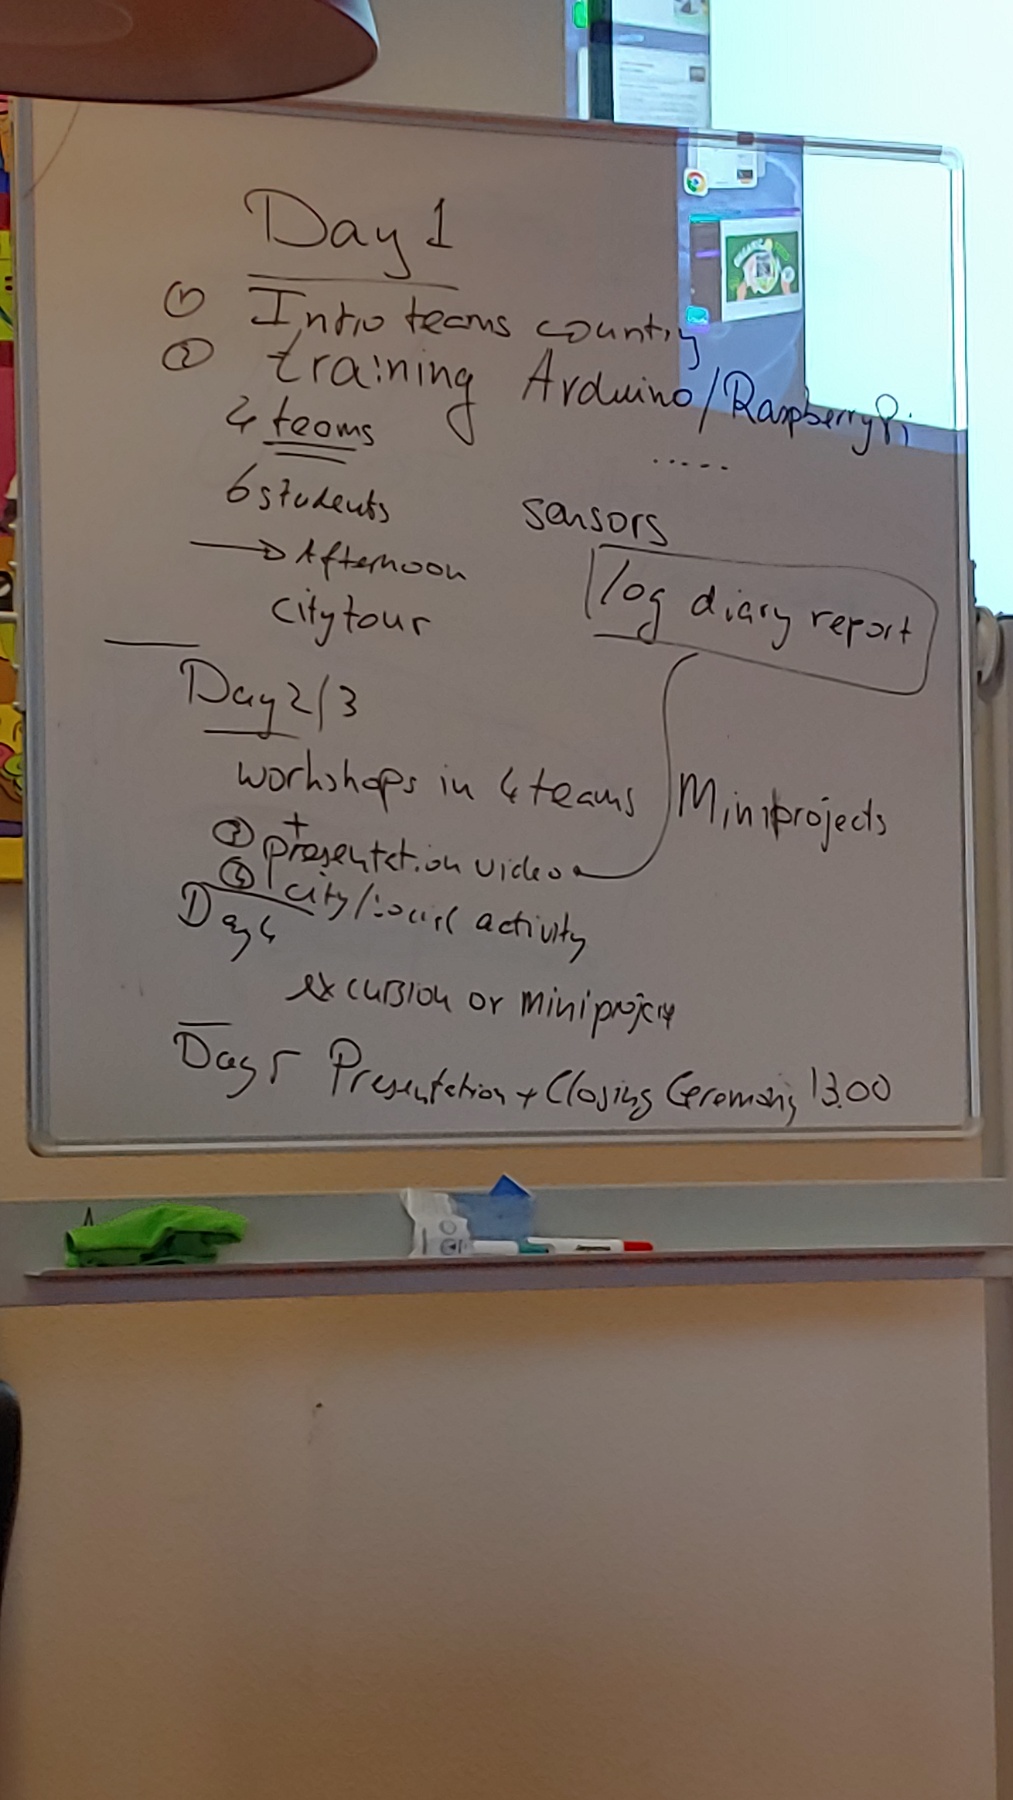 Day 1
① Intro teams country
② training Arduino/RaspberryPi
4 teams
.....
6 students
sensors
→ Afternoon
log diary report
city tour
Day 2/3
workshops in 4 teams
Miniprojects
+
② presentation video
③ city/social activity
Day 4
excursion or miniproject
Day 5 Presentation + Closing Ceremony 13.00
ORGANIC